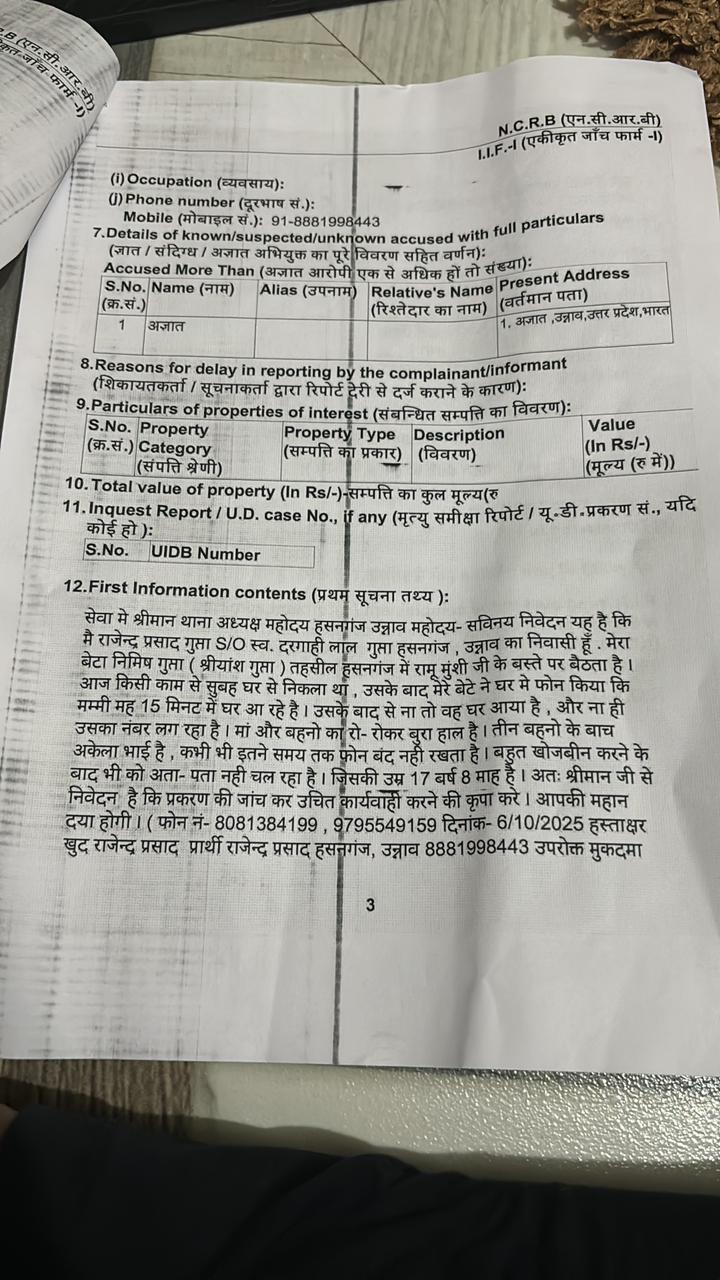 N.C.R.B (एन.सी.आर.बी)
I.I.F.-I (एकीकृत जाँच फार्म -I)
(i) Occupation (व्यवसाय):
(j) Phone number (दूरभाष सं.):
Mobile (मोबाइल सं.): 91-8881998443
7.Details of known/suspected/unknown accused with full particulars
(ज्ञात / संदिग्ध / अज्ञात अभियुक्त का पूरे विवरण सहित वर्णन):
Accused More Than (अज्ञात आरोपी एक से अधिक हों तो संख्या):
S.No. Name (नाम) Alias (उपनाम) Relative's Name Present Address
(क्र.सं.) (रिश्तेदार का नाम) (वर्तमान पता)
1 अज्ञात 1. अज्ञात ,उन्नाव,उत्तर प्रदेश,भारत
8.Reasons for delay in reporting by the complainant/informant
(शिकायतकर्ता / सूचनाकर्ता द्वारा रिपोर्ट देरी से दर्ज कराने के कारण):
9.Particulars of properties of interest (संबन्धित सम्पत्ति का विवरण):
S.No. Property Property Type Description Value
(क्र.सं.) Category (सम्पत्ति का प्रकार) (विवरण) (In Rs/-)
(संपत्ति श्रेणी) (मूल्य (रु में))
10.Total value of property (In Rs/-)-सम्पत्ति का कुल मूल्य(रु
11.Inquest Report / U.D. case No., if any (मृत्यु समीक्षा रिपोर्ट / यू.डी.प्रकरण सं., यदि
कोई हो ):
S.No. UIDB Number
12.First Information contents (प्रथम सूचना तथ्य ):
सेवा मे श्रीमान थाना अध्यक्ष महोदय हसनगंज उन्नाव महोदय- सविनय निवेदन यह है कि
मै राजेन्द्र प्रसाद गुप्ता S/O स्व. दरगाही लाल गुप्ता हसनगंज , उन्नाव का निवासी हूँ . मेरा
बेटा निमिष गुप्ता ( श्रीयांश गुप्ता ) तहसील हसनगंज में रामू मुंशी जी के बस्ते पर बैठता है ।
आज किसी काम से सुबह घर से निकला था , उसके बाद मेरे बेटे ने घर मे फोन किया कि
मम्मी मह 15 मिनट में घर आ रहे है । उसके बाद से ना तो वह घर आया है , और ना ही
उसका नंबर लग रहा है । मां और बहनो का रो- रोकर बुरा हाल है । तीन बहनो के बाच
अकेला भाई है , कभी भी इतने समय तक फोन बंद नही रखता है । बहुत खोजबीन करने के
बाद भी को अता- पता नही चल रहा है । जिसकी उम्र 17 बर्ष 8 माह है । अतः श्रीमान जी से
निवेदन है कि प्रकरण की जांच कर उचित कार्यवाही करने की कृपा करे । आपकी महान
दया होगी । ( फोन नं- 8081384199 , 9795549159 दिनांक- 6/10/2025 हस्ताक्षर
खुद राजेन्द्र प्रसाद प्रार्थी राजेन्द्र प्रसाद हसनगंज, उन्नाव 8881998443 उपरोक्त मुकदमा
3